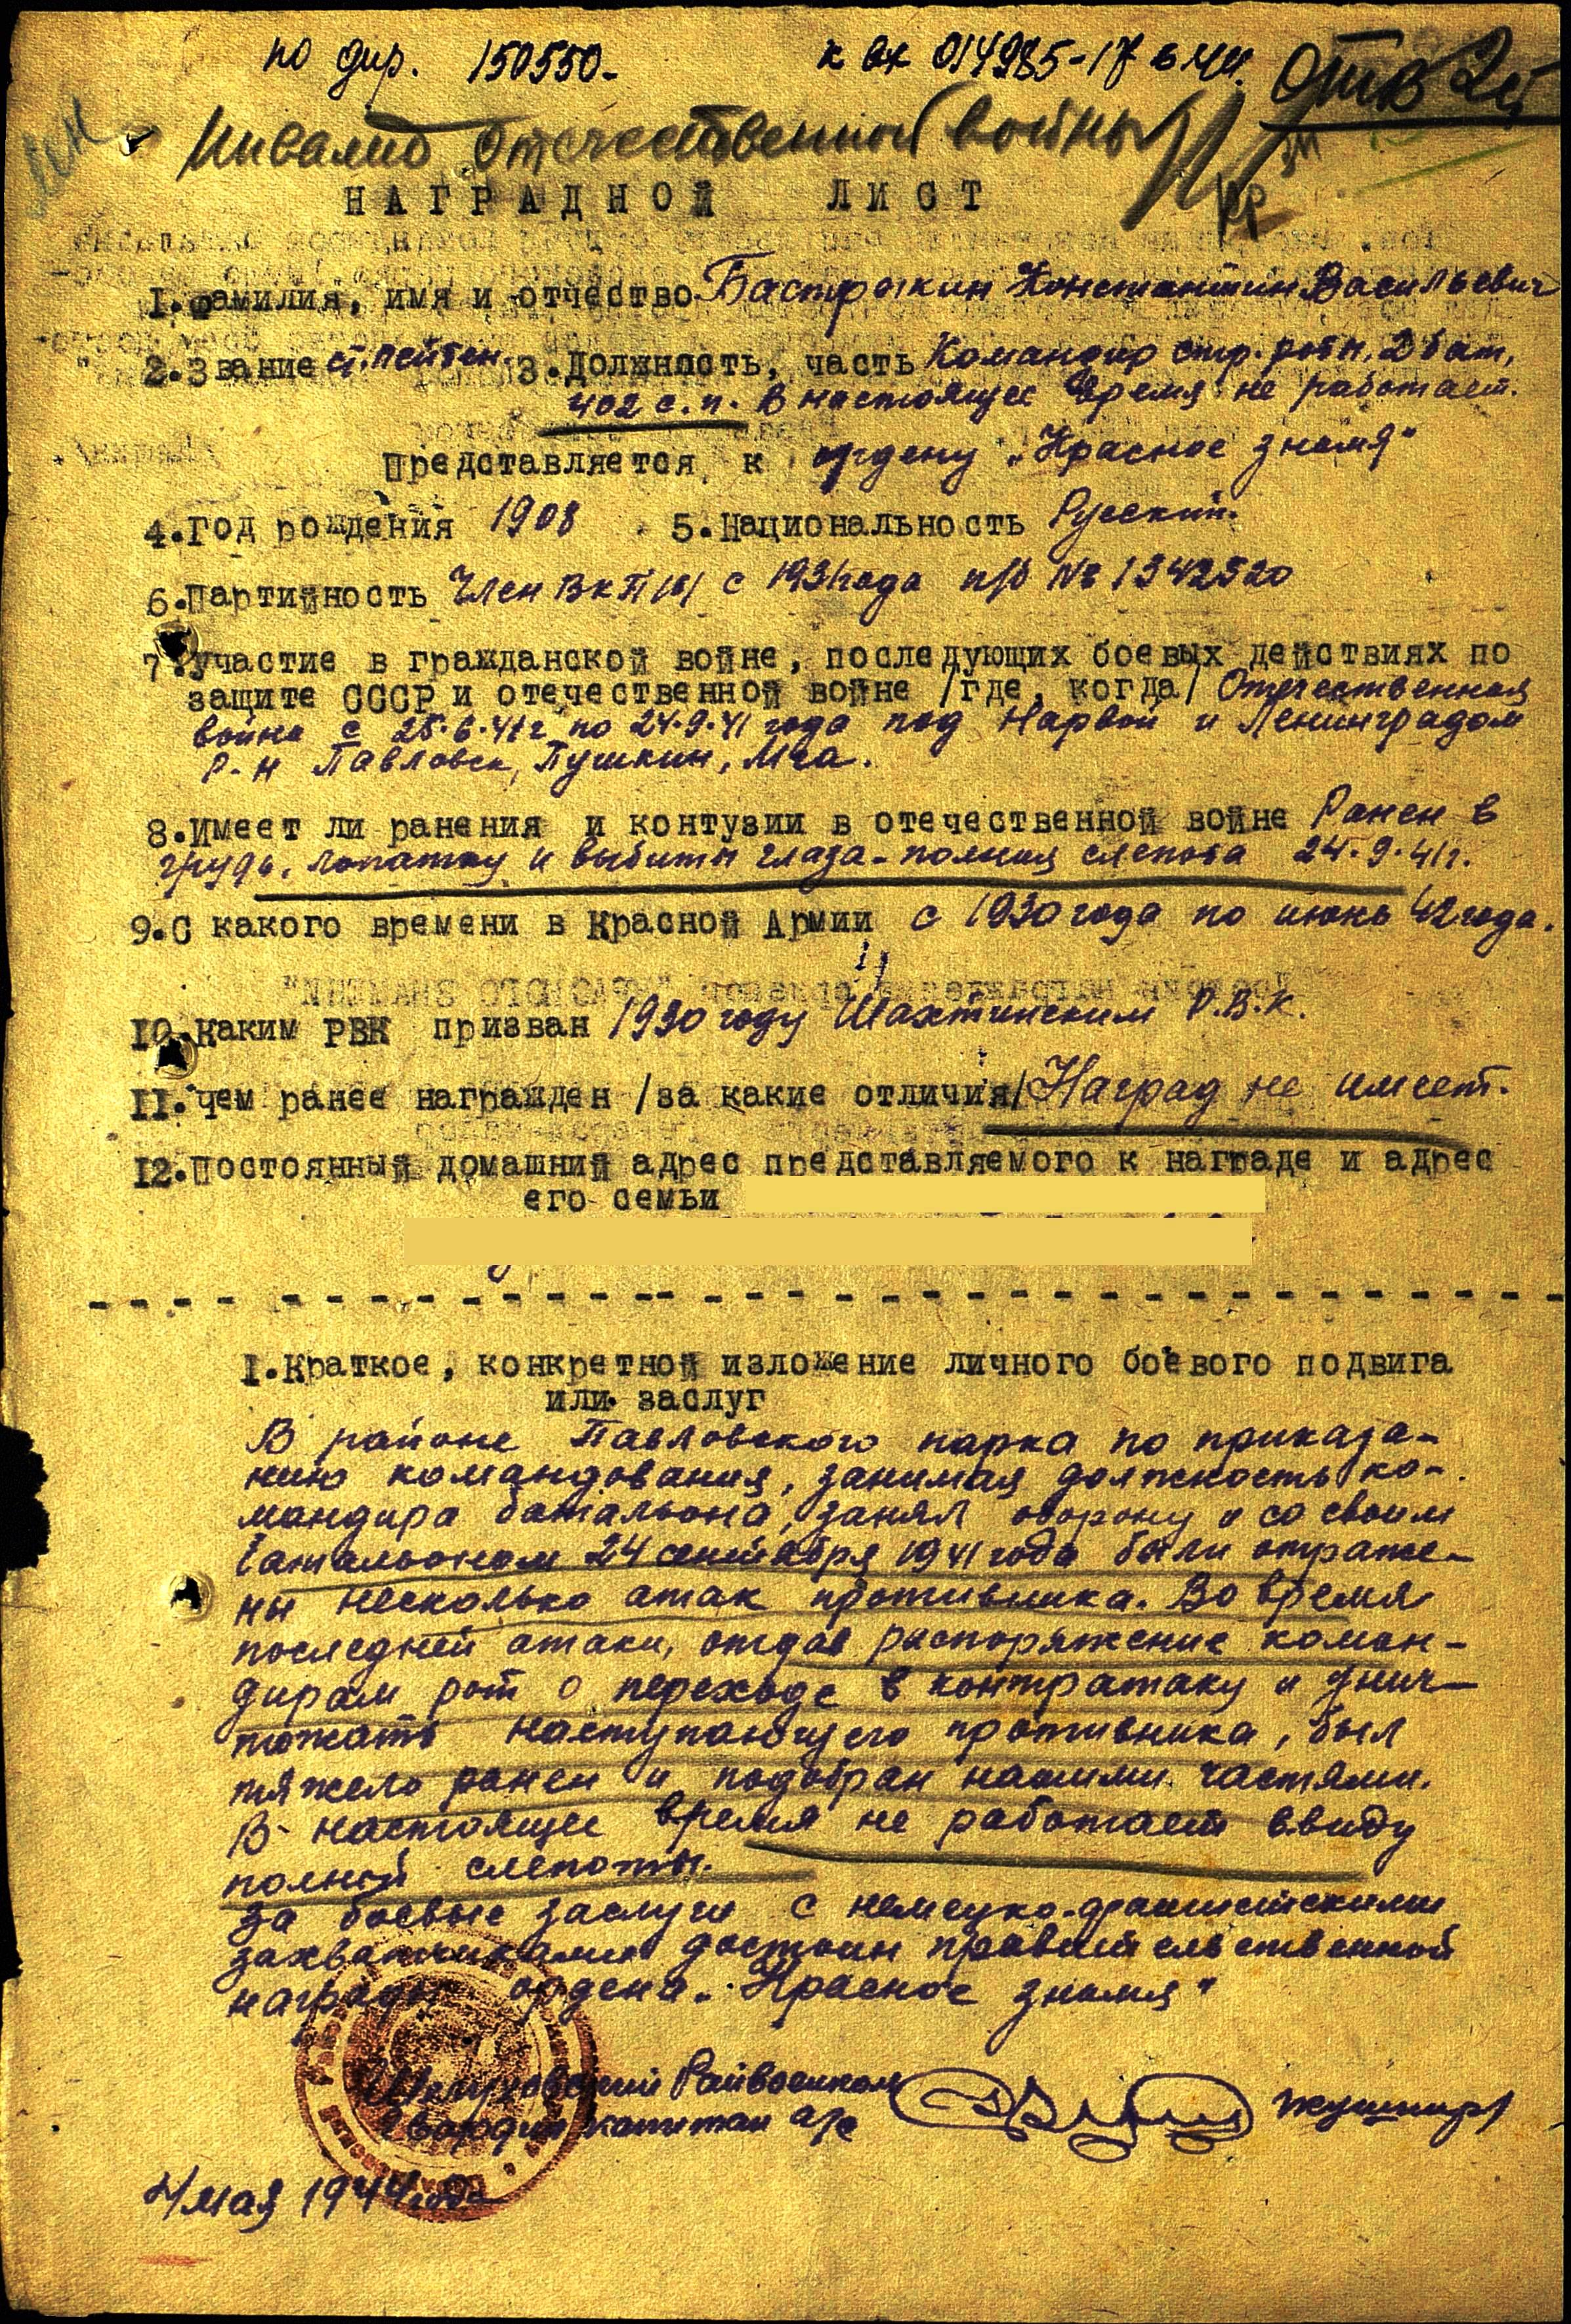 по дир. 150550.
к вх 014985-17
Инвалид Отечественной войны
НАГРАДНОЙ ЛИСТ
1. Фамилия, имя и отчество Бастрыкин Константин Васильевич
2. Звание ст. лейтен. 3. Должность, часть Командир стр. роты, 2 бат,
402 с.п. В настоящее время не работает.
Представляется к ордену „Красное знамя"
4. Год рождения 1908 5. Национальность Русский.
6. Партийность Член ВКП(б) с 1931 года п/б № 1342520
7. Участие в гражданской войне, последующих боевых действиях по
защите СССР и отечественной войне /где, когда/ Отечественная
война с 25.6.41 г. по 24.9.41 года под Нарвой и Ленинградом
р-н Павловск, Пушкин, Мга.
8. Имеет ли ранения и контузии в отечественной войне Ранен в
грудь, лопатку и выбиты глаза - полная слепота 24.9.41 г.
9. С какого времени в Красной Армии с 1930 года по июнь 42 года.
10. Каким РВК призван 1930 году Шахтинским Р.В.К.
11. Чем ранее награжден /за какие отличия/ Наград не имеет.
12. Постоянный домашний адрес представляемого к награде и адрес
его семьи
1. Краткое, конкретной изложение личного боевого подвига
или заслуг
В районе Павловского парка по приказа-
нию командования, занимая должность ко-
мандира батальона, занял оборону и со своим
батальоном 24 сентября 1941 года были отраже-
ны несколько атак противника. Во время
последней атаки, отдав распоряжение коман-
дирам рот о переходе в контратаку и унич-
тожать наступающего противника, был
тяжело ранен и подобран нашими частями.
В настоящее время не работает ввиду
полной слепоты.
За боевые заслуги с немецко-фашистскими
захватчиками достоин правительственной
награды ордена „Красное знамя"
Райвоенком
гвардии капитан а/с
4 мая 1944 года